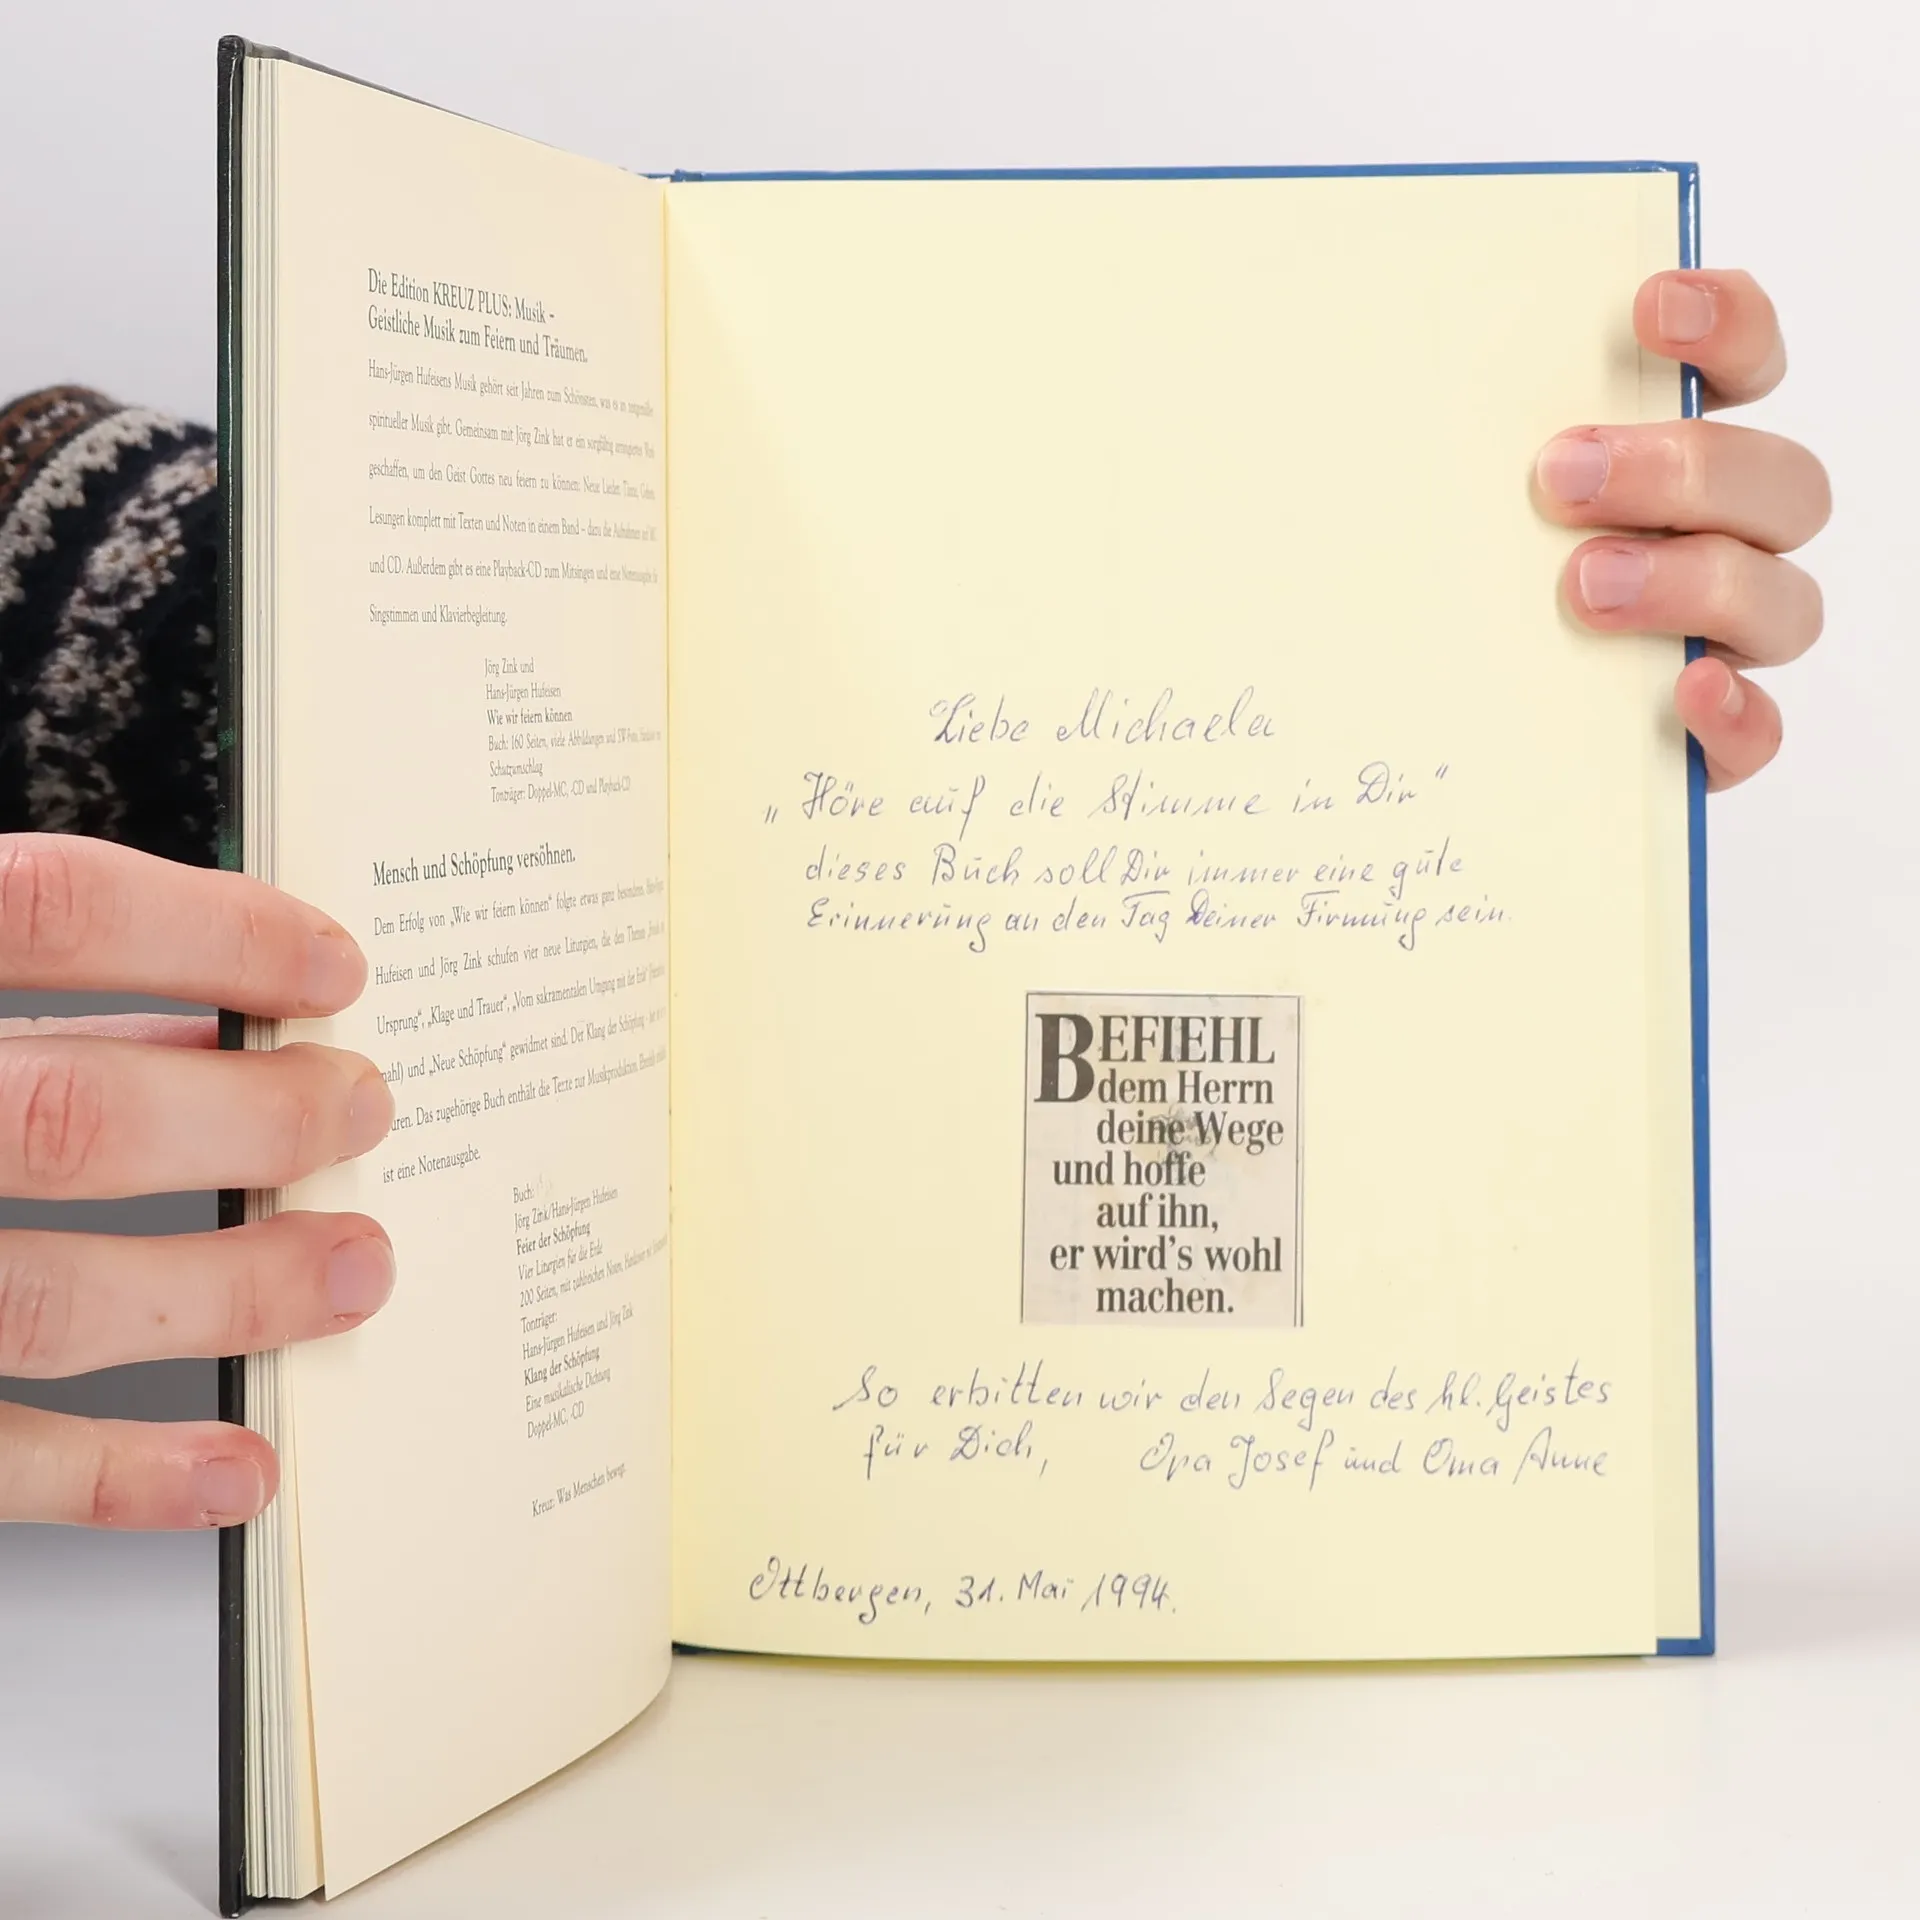 Die Edition KREUZ PLUS: Musik –
Geistliche Musik zum Feiern und Träumen.
Hans-Jürgen Hufeisens Musik gehört seit Jahren zum Schönsten, was es an zeitgemäßer
spiritueller Musik gibt. Gemeinsam mit Jörg Zink hat er ein sorgfältig arrangiertes Werk
geschaffen, um den Geist Gottes neu feiern zu können: Neue Lieder, Tänze, Gebete,
Lesungen komplett mit Texten und Noten in einem Band – dazu die Aufnahmen auf MC
und CD. Außerdem gibt es eine Playback-CD zum Mitsingen und eine Notenausgabe für
Singstimmen und Klavierbegleitung.
Jörg Zink und
Hans-Jürgen Hufeisen
Wie wir feiern können
Buch: 160 Seiten, viele Abbildungen und SW-Fotos,
Schutzumschlag
Tonträger: Doppel-MC, -CD und Playback-CD
Mensch und Schöpfung versöhnen.
Dem Erfolg von „Wie wir feiern können“ folgte etwas ganz besonderes.
Hufeisen und Jörg Zink schufen vier neue Liturgien, die den Themen
Ursprung“, „Klage und Trauer“, „Vom sakramentalen Umgang mit der Erde“
mahl) und „Neue Schöpfung“ gewidmet sind. Der Klang der Schöpfung –
uren. Das zugehörige Buch enthält die Texte zur Musikproduktion.
ist eine Notenausgabe.
Buch:
Jörg Zink/Hans-Jürgen Hufeisen
Feier der Schöpfung
Vier Liturgien für die Erde
200 Seiten, mit zahlreichen Noten,
Tonträger:
Hans-Jürgen Hufeisen und Jörg Zink
Klang der Schöpfung
Eine musikalische Dichtung
Doppel-MC, -CD
Kreuz: Was Menschen bewegt.
Liebe Michaela
„Höre auf die Stimme in Dir“
dieses Buch soll Dir immer eine gute
Erinnerung an den Tag Deiner Firmung sein.
BEFIEHL
dem Herrn
deine Wege
und hoffe
auf ihn,
er wird's wohl
machen.
So erbitten wir den Segen des hl. Geistes
für Dich, Opa Josef und Oma Anne
Ottbergen, 31. Mai 1994.